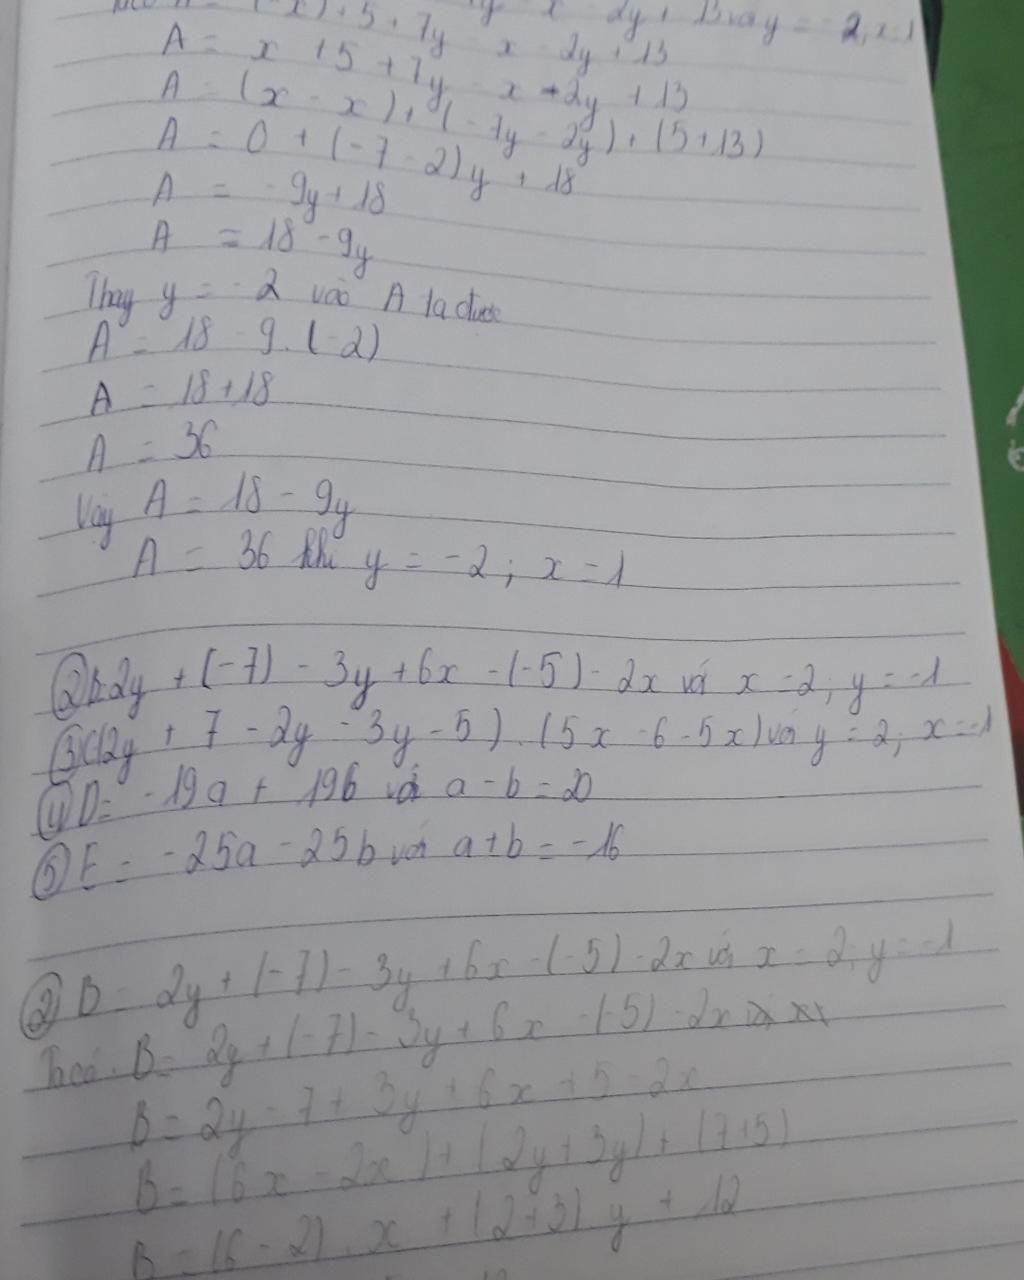 A = (-x) + 5 + 7y - x - 2y + 13 y = -2, x = 1
A = x + 5 + 7y - x + 2y + 13
A = (x - x) + (-7y - 2y) + (5+13)
A = 0 + (-7 - 2)y + 18
A = -9y + 18
A = 18 - 9y
Thay y = -2 vào A ta được
A = 18 - 9.(-2)
A = 18 + 18
A = 36
Vậy A = 18 - 9y
A = 36 khi y = -2 ; x = 1
② B = 2y + (-7) - 3y + 6x - (-5) - 2x với x = 2, y = -1
③ C(12y + 7 - 2y - 3y - 5) . (5x - 6 - 5x) với y = 2, x = -1
④ D = -19a + 19b với a - b = 20
⑤ E = -25a - 25b với a + b = -16
② B = 2y + (-7) - 3y + 6x - (-5) - 2x với x = 2, y = -1
Ta có: B = 2y + (-7) - 3y + 6x - (-5) - 2x
B = 2y - 7 + 3y + 6x + 5 - 2x
B = (6x - 2x) + (2y + 3y) + (7+5)
B = (6 - 2) . x + (2+3) y + 12